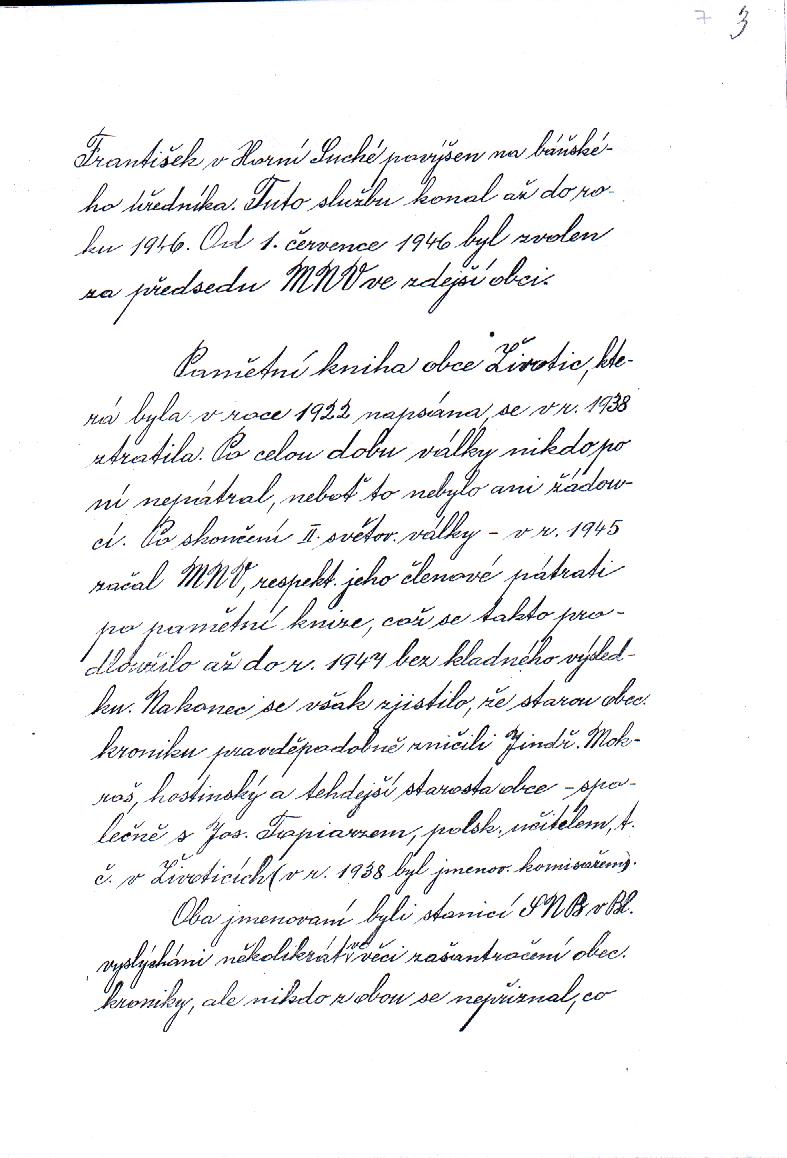 7 3
František v Horní Suché povýšen na báňské-
ho úředníka. Tuto službu konal až do ro-
ku 1946. Od 1. července 1946 byl zvolen
za předsedu MNV ve zdejší obci.
Pamětní kniha obce Životic, kte-
rá byla v roce 1922 napsána, se v r. 1938
ztratila. Po celou dobu války nikdo po
ní nepátral, neboť to nebylo ani žádou-
cí. Po skončení II. světov. války - v r. 1945
začal MNV, respekt. jeho členové pátrati
po pamětní knize, což se takto pro-
dloužilo až do r. 1947 bez kladného výsled-
ku. Nakonec se však zjistilo, že starou obec.
kroniku pravděpodobně zničili Jindř. Mok-
roš, hostinský a tehdejší starosta obce - spo-
lečně s Jos. Topiarzem, polsk. učitelem, t.
č. v Životicích (v r. 1938 byl jmenov. komisařem).
Oba jmenovaní byli stanicí SNB v Bl.
vyslýcháni několikrát ve věci zašantročení obec.
kroniky, ale nikdo z obou se nepřiznal, co